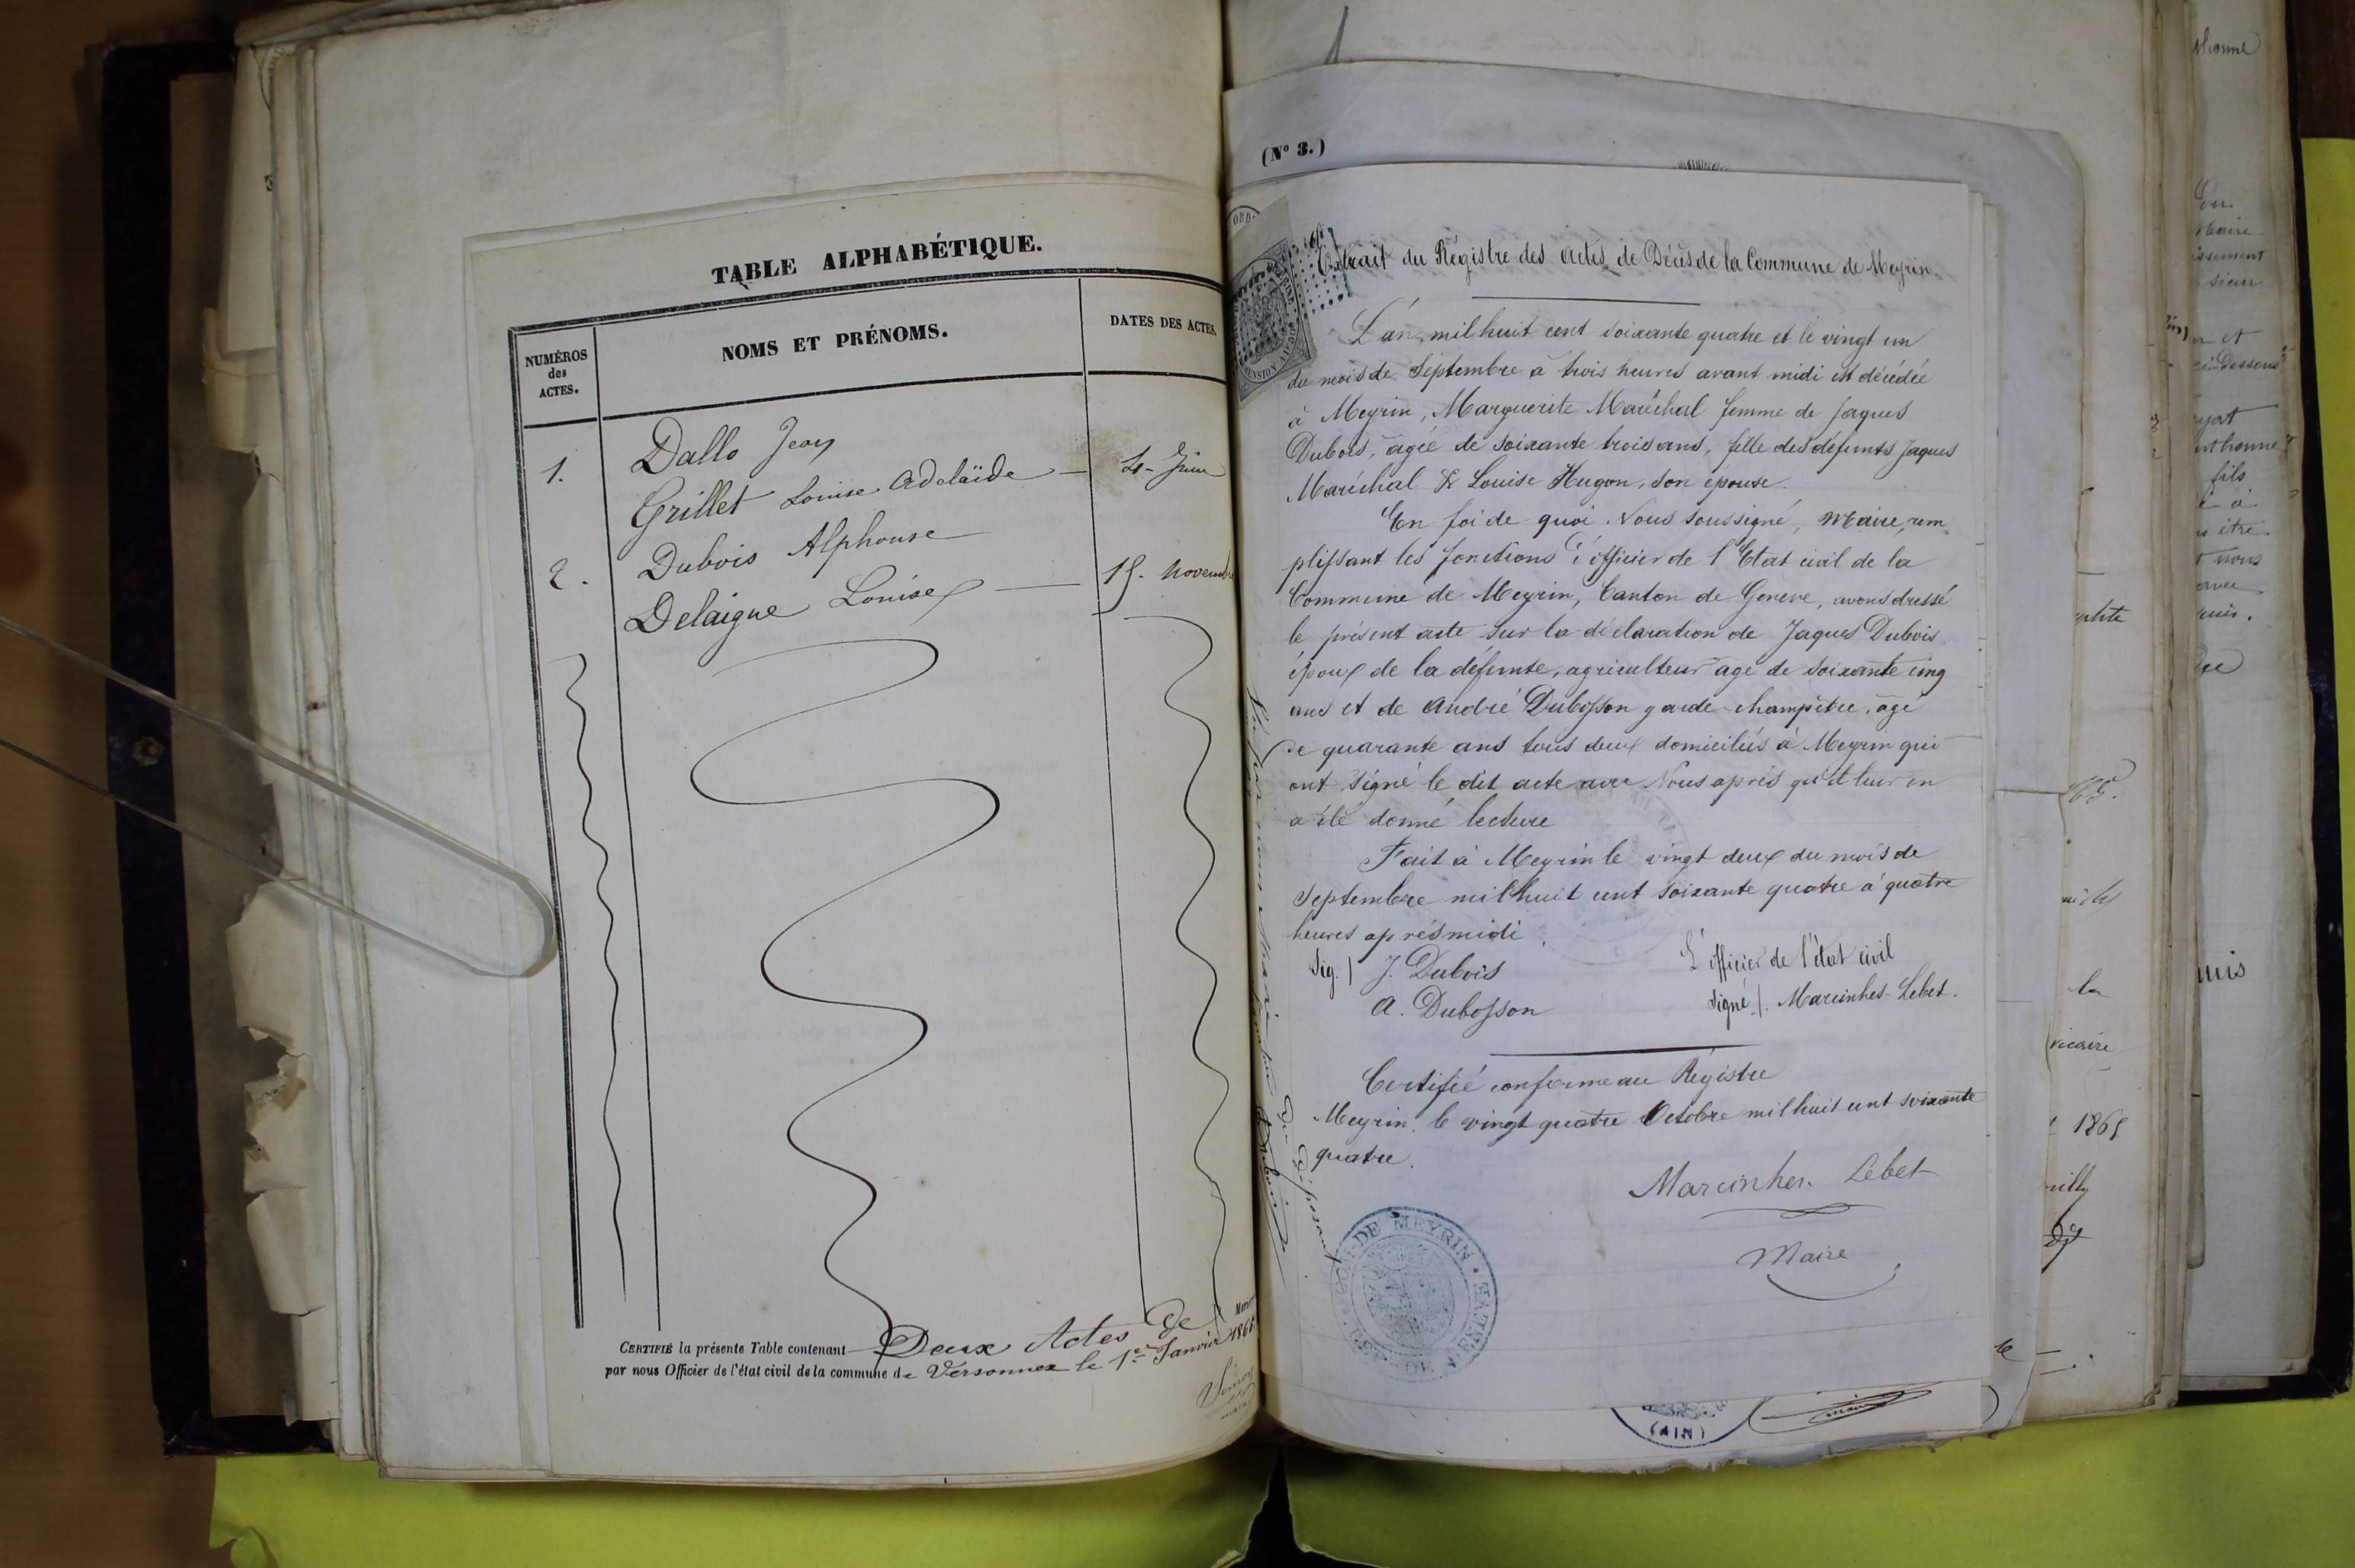 TABLE ALPHABÉTIQUE.
NUMÉROS
des
ACTES.
NOMS ET PRÉNOMS.
DATES DES ACTES.
1.
Dallo Jean
Grillet Louise Adelaïde
4 - Juin
2.
Dubois Alphonse
Delaigue Louise
15. Novembre
CERTIFIÉ la présente Table contenant Deux Actes de
par nous Officier de l'état civil de la commune de Versonnex le 1er Janvier
(No 3.)
Extrait du Régistre des Actes de Décès de la Commune de Meyrin.
L'an mil huit cent soixante quatre et le vingt un
du mois de Septembre à trois heures avant midi est décédée
à Meyrin, Marguerite Maréchal femme de Jaques
Dubois, agée de soixante trois ans, fille des défunts Jaques
Maréchal & Louise Hugon, son épouse.
En foi de quoi Nous soussigné, Maire, rem
plissant les fonctions d'officier de l'Etat civil de la
Commune de Meyrin, Canton de Genève, avons dressé
le présent acte sur la déclaration de Jaques Dubois
époux de la défunte, agriculteur agé de soixante cinq
ans et de André Dubosson garde-champêtre, agé
de quarante ans tous deux domiciliés à Meyrin qui
ont signé le dit acte avec Nous après qu'il leur en
a été donné lecture
Fait à Meyrin le vingt deux du mois de
Septembre mil huit cent soixante quatre à quatre
heures après midi.
Sig. / J. Dubois
A. Dubosson
L'officier de l'état civil
signé /. Marcinhes-Lebet.
Certifié conforme au Régistre
Meyrin, le vingt quatre Octobre mil huit cent soixante
quatre.
Marcinhes. Lebet
Maire
DE MEYRIN
(AIN)
1865
la
vicaire
fils